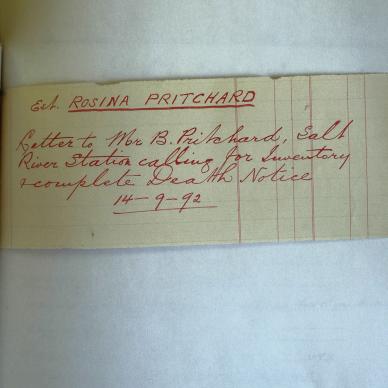 Est. ROSINA PRITCHARD
Letter to Mr B. Pritchard, Salt
River Station calling for Inventory
& complete Death Notice
14-9-92